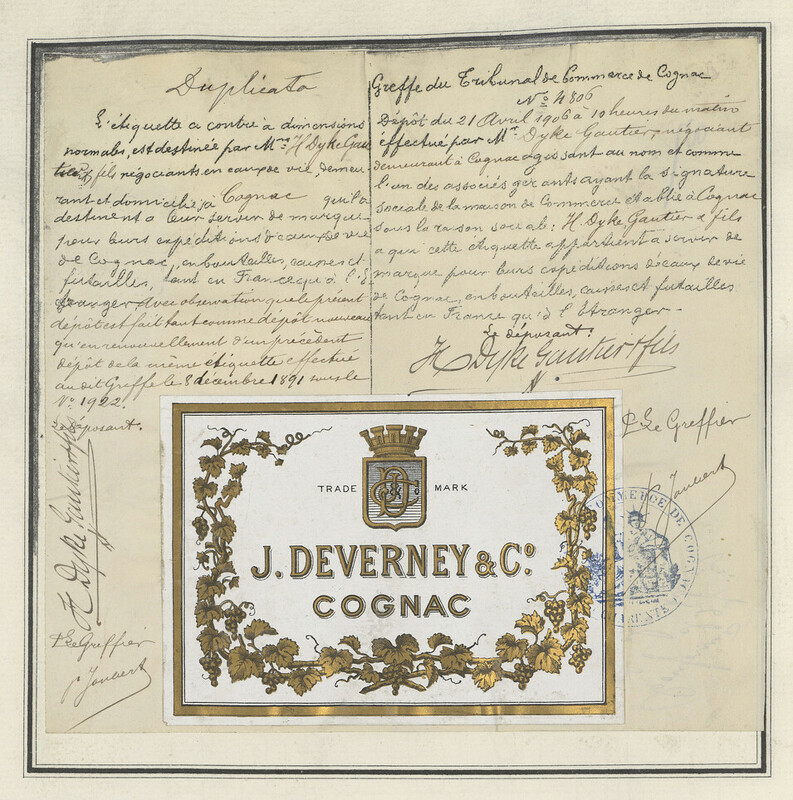 Duplicata
L'étiquette ci contre à dimensions
normales, est destinée par Mrs H Dyke Gau-
tier & fils négociants en eaux de vie, demeu-
rant et domiciliés à Cognac qu'il a
destinent à leur servir de marque
pour leurs expéditions d'eaux de vie
de Cognac, en bouteilles, caisses et
futailles, tant en France qu'à l'é-
tranger, avec observation que le présent
dépôt est fait tant comme dépôt nouveau
qu'en renouvellement d'un précédent
dépôt de la même étiquette effectué
au dit Greffe le 8 décembre 1891 sous le
No 1922.
Le déposant.
H Dyke Gautier & fils
Pr Le Greffier
Joubert
Greffe du Tribunal de Commerce de Cognac
No 4806
Dépôt du 21 Avril 1906 à 10 heures du matin
effectué par Mr Dyke Gautier, négociant
demeurant à Cognac agissant au nom et comme
l'un des associés gérants ayant la signature
sociale de la maison de Commerce établie à Cognac
sous la raison sociale: H. Dyke Gautier & fils
à qui cette étiquette appartient à servir de
marque pour leurs expéditions d'eaux de vie
de Cognac, en bouteilles, caisses et futailles
tant en France qu'à l'Etranger.
Le déposant.
H Dyke Gautier & fils
Pr Le Greffier
Joubert
COMMERCE DE COGNAC
CHARENTE
TRADE MARK
J. DEVERNEY & Co.
COGNAC